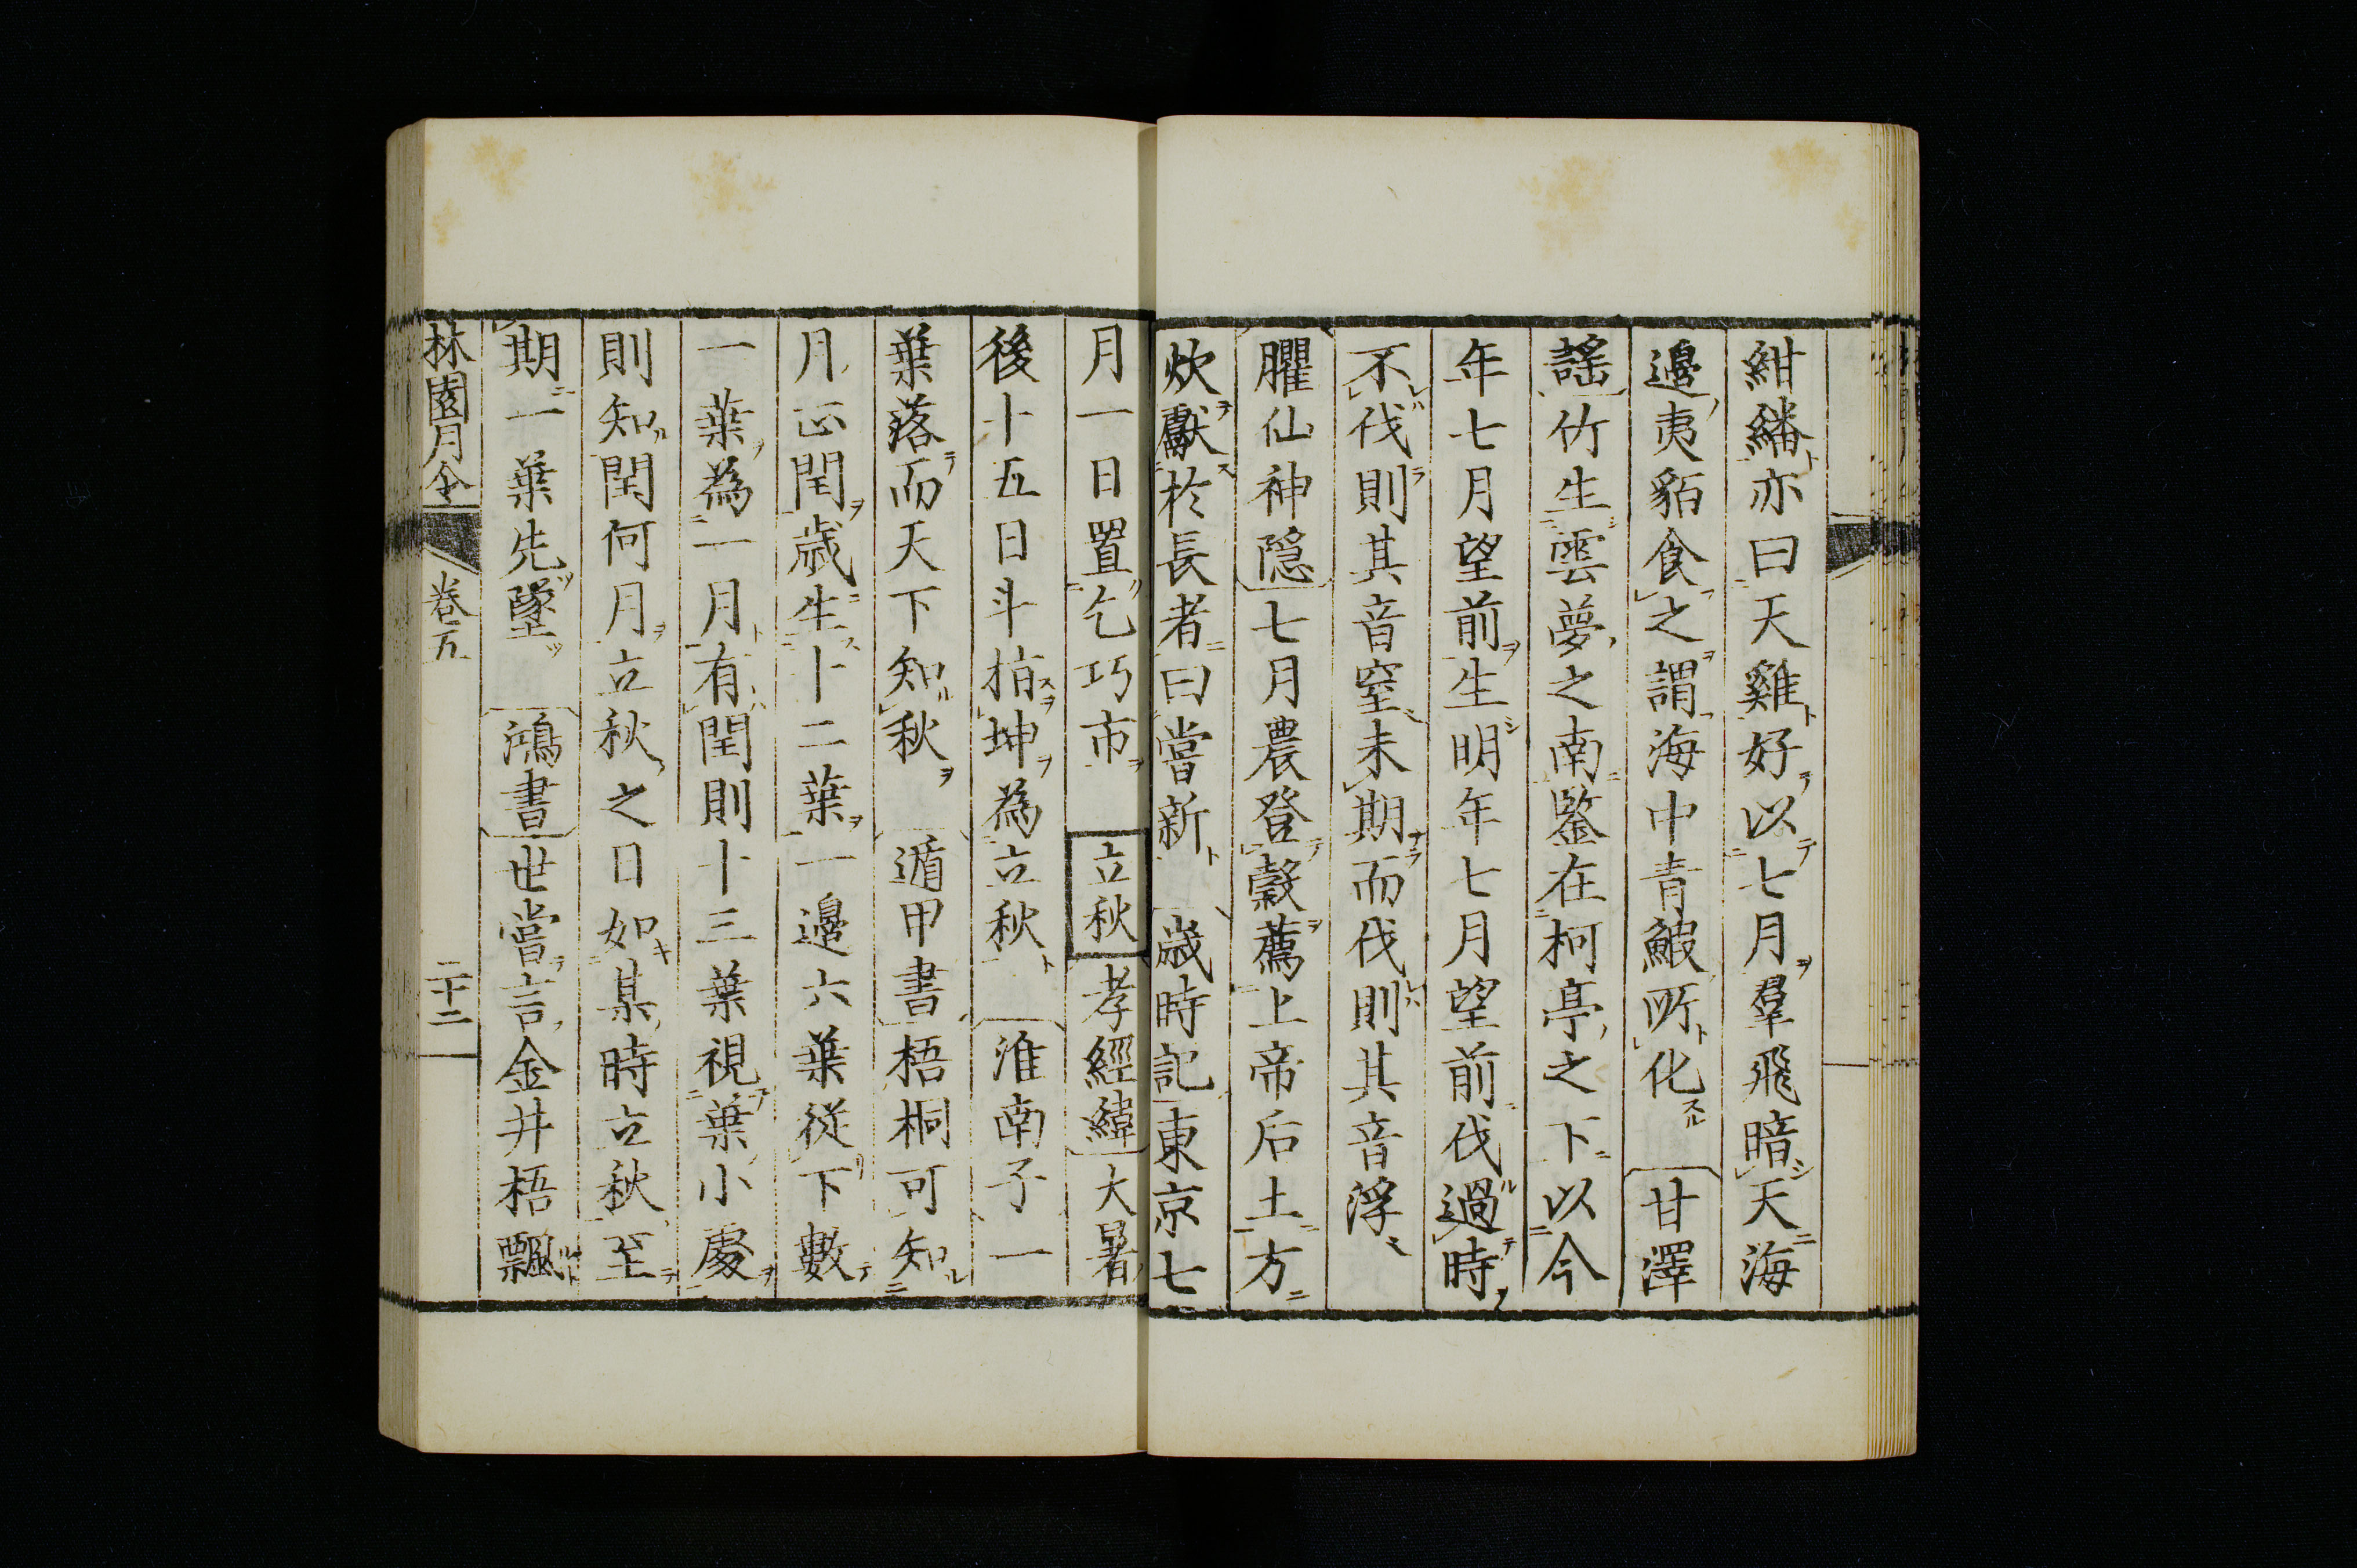 紺繙亦曰天雞好以七月羣飛暗天海
邉夷貊食之謂海中青鮁所化 甘澤
謡竹生雲夢之南鑒在柯亭之下以今
年七月望前生明年七月望前伐過時
不伐則其音窒未期而伐則其音浮
臞仙神隠七月農登穀薦上帝后土方
炊獻於長者曰嘗新 歳時記東京七
月一日置乞巧市 立秋 孝經緯大暑
後十五日斗指坤為立秋 淮南子一
葉落而天下知秋 遁甲書梧桐可知
月正閏歳生十二葉一邉六葉従下數
一葉為一月有閏則十三葉視葉小處
則知閏何月立秋之日如某時立秋至
期一葉先墜 鴻書世嘗言金井梧飄
林園月令 卷五 二十二